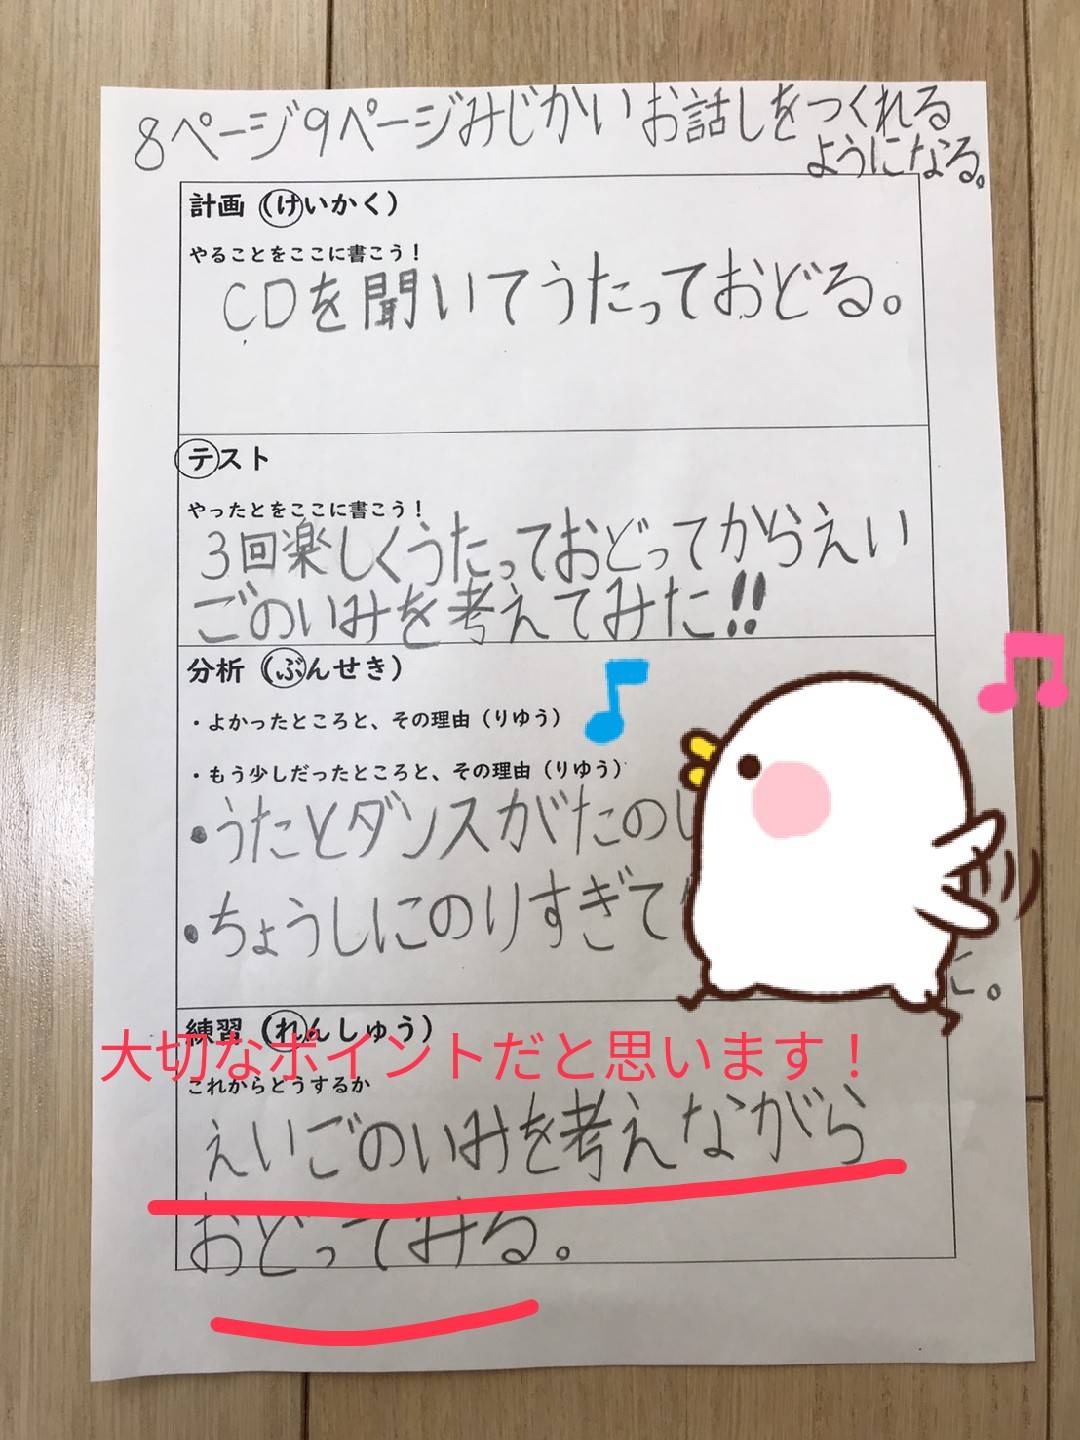 8ページ9ページみじかいお話しをつくれる
ようになる。
計画(けいかく)
やることをここに書こう!
CDを聞いてうたっておどる。
テスト
やったとをここに書こう!
3回楽しくうたっておどってからえい
ごのいみを考えてみた!!
分析(ぶんせき)
・よかったところと、その理由(りゆう)
・もう少しだったところと、その理由(りゆう)
・うたとダンスがたのし
・ちょうしにのりすぎて
た。
練習(れんしゅう)
大切なポイントだと思います!
これからどうするか
えいごのいみを考えながら
おどってみる。